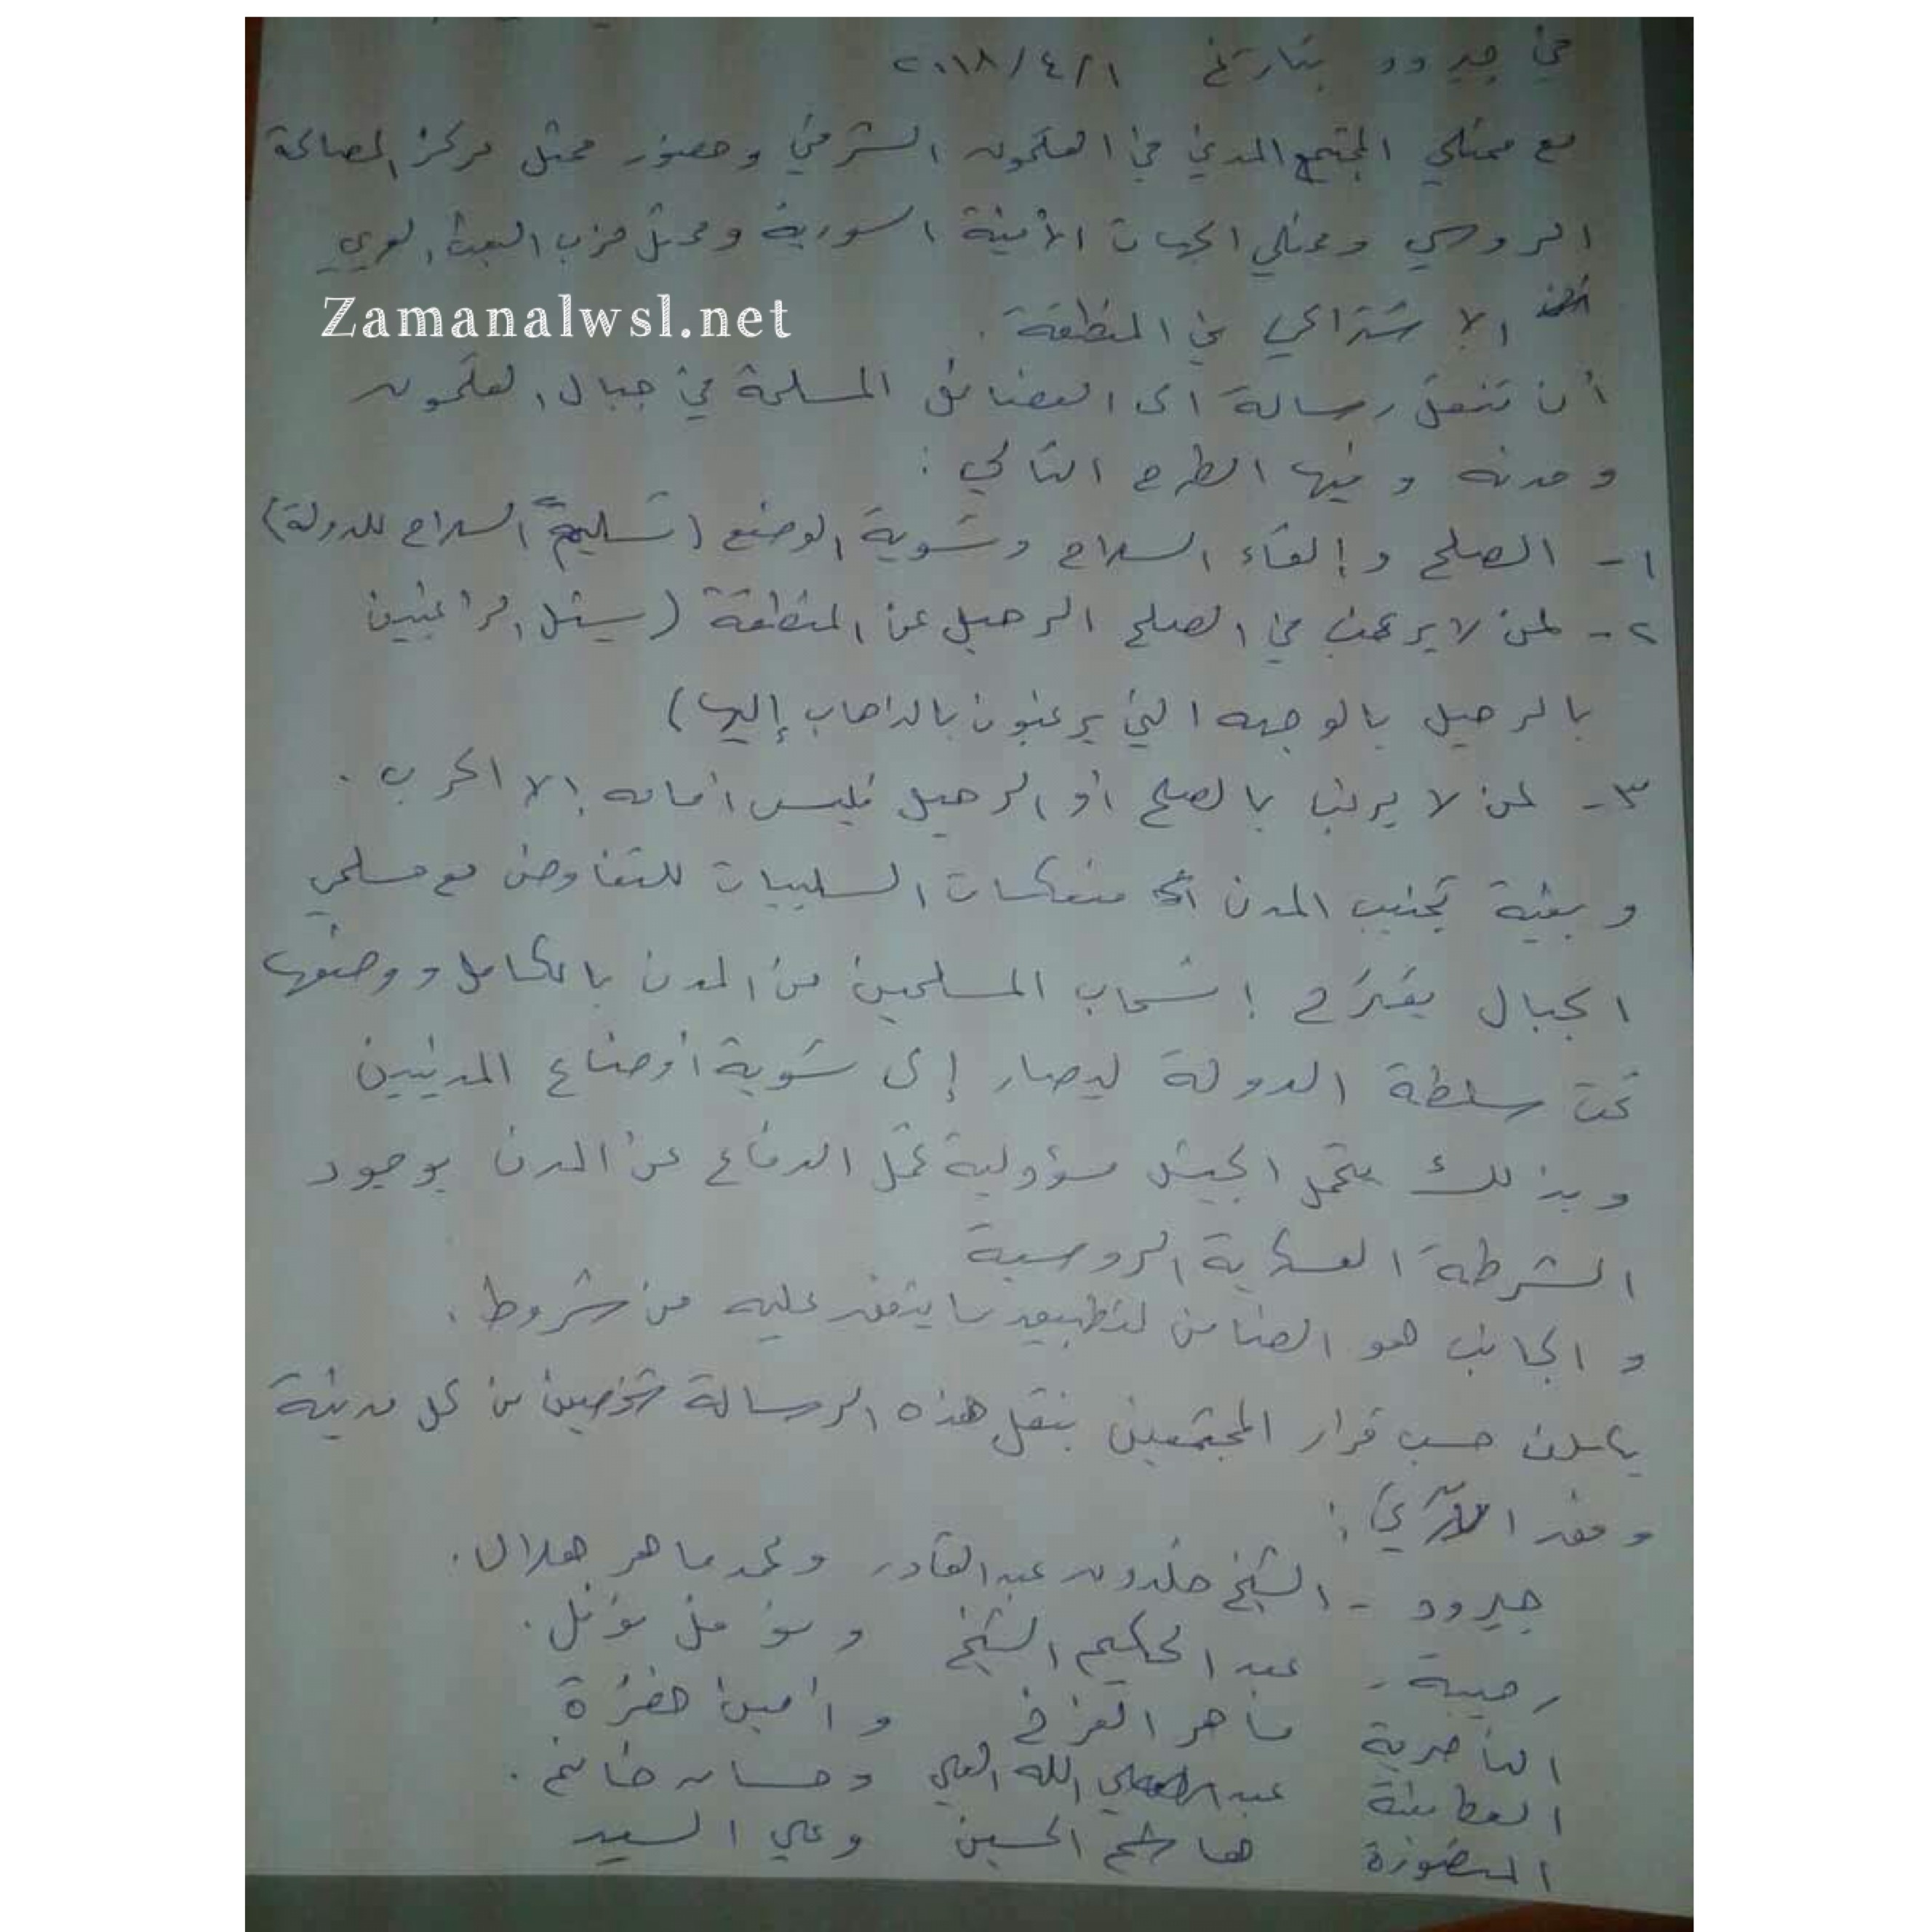 في جيرود بتاريخ ٢٠١٨/٤/١
مع ممثلي المجتمع المدني في القلمون الشرقي وحضور ممثل مركز المصالحة
الروسي وممثلي الجهات الأمنية السورية وممثل حزب البعث العربي
الاشتراكي في المنطقة.
Zamanalwsl.net
أن تنقل رسالة الى الفصائل المسلحة في جبال القلمون
ومدنه وفيها الطرح التالي:
١- الصلح وإلقاء السلاح وتسوية الوضع (تسليم السلاح للدولة)
٢- لمن لا يرغب في الصلح الرحيل عن المنطقة (الراغبين
بالرحيل بالوجهه التي يرغبون بالذاهاب إليها)
٣- لمن لا يرغب بالصلح أو الرحيل فليس أمامه إلا الحرب.
وبغية تجنيب المدن منعكسات السلبيات للتفاوض مع مسلحي
الجبال يقترح إنسحاب المسلحين من المدن بالكامل ووضعها
تحت سلطة الدولة ليصار إلى تسوية أوضاع المدنيين
وبذلك يتحمل الجيش مسؤولية الدفاع عن المدن بوجود
الشرطة العسكرية الروسية
و الجانب هو الضامن لتطبيق ما يتفق عليه من شروط.
حسب قرار المجتمعين بنقل هذه الرسالة شخصين من كل مدينة
وفق الآتي:
جيرود - الشيخ خلدون عبد القادر ومحمد ماهر هلال.
رحيبة - عبد الحكيم الشيخ و
الناصرية ماهر الفرخ و أمين
العطنة عبد الله العلي وحسان غانم.
المنصورة هاشم الحسين وعلي السيد